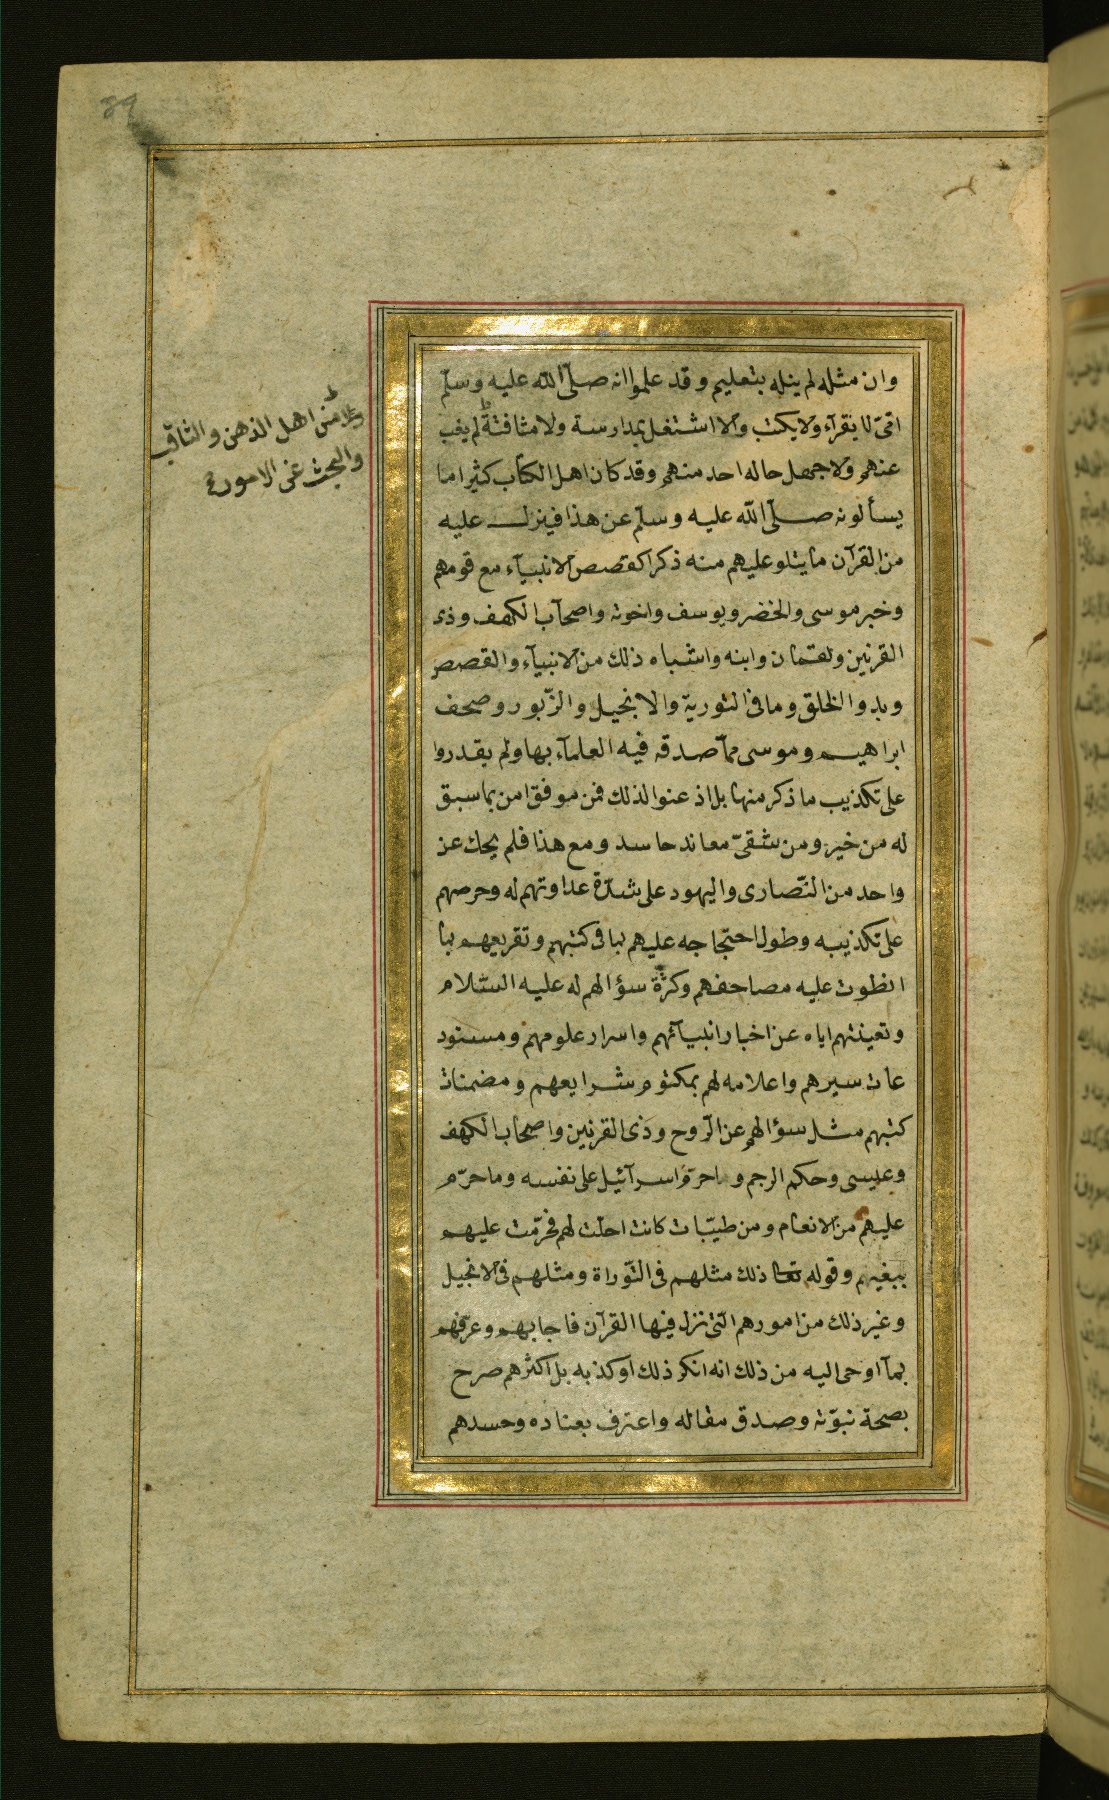 وان مثله لم ينله بتعليم وقد علموا انه صلّى الله عليه وسلّم
امّىّ لا يقرأء ولا يكتب ولا اشتغل بمدارسة ولا مثافنة لم يغب
عنهم ولا جهل حاله احد منهم وقد كان اهل الكتاب كثيرا ما
يسألونه صلّى الله عليه وسلّم عن هذا فينزل عليه
من القرآن ما يتلو عليهم منه ذكرا كقصص الانبيآء مع قومهم
وخبر موسى والخضر ويوسف واخوته واصحاب الكهف وذى
القرنين ولقمان وابنه واشباه ذلك من الانبيآء والقصص
وبدو الخلق وما فى التورية والانجيل والزّبور وصحف
ابراهيم وموسى ممّا صدقه فيه العلمآء بها ولم يقدروا
على تكذيب ما ذكر منها بل اذعنوا لذلك فمن موفق امن بما سبق
له من خير ومن شقىّ معاند حاسد ومع هذا فلم يحك عن
واحد من النّصارى واليهود على شدّة عداوتهم له وحرصهم
على تكذيبه وطول احتجاجه عليهم بما فى كتبهم وتقريعهم بما
انطوت عليه مصاحفهم وكثرة سؤالهم له عليه السّلام
وتعينتهم اياه عن اخبار انبيآئهم واسرار علومهم ومستود
عات سيرهم واعلامه لهم بمكتوم شرايعهم ومضمنات
كتبهم مثل سؤالهم عن الرّوح وذى القرنين واصحاب الكهف
وعيسى وحكم الرجم وما حرّم اسرآئيل على نفسه وما حرّم
عليهم من الانعام ومن طيّبات كانت احلّت لهم فحرّمت عليهم
ببغيهم وقوله تعا ذلك مثلهم فى التّوراة ومثلهم فى الانجيل
وغير ذلك من امورهم الّتى نزل فيها القرآن فاجابهم وعرّفهم
بمآ اوحى اليه من ذلك انه انكر ذلك او كذبه بل اكثرهم صرح
بصحة نبوّته وصدق مقاله واعترف بعناده وحسدهم
ولا من اهل الذهن والثاقب
والبحث عن الامور
39